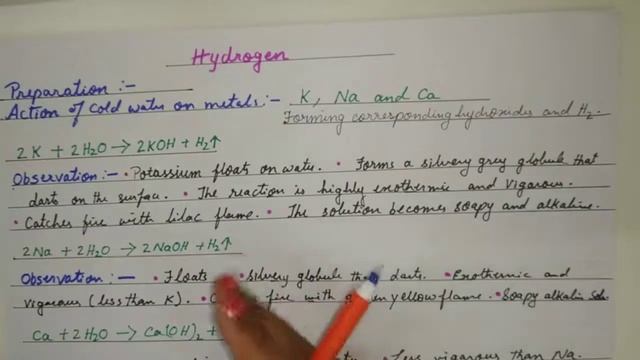 Hydrogen
Preparation :-
Action of cold water on metals :- K, Na and Ca
Forming corresponding hydroxides and H₂.
2K + 2H₂O → 2KOH + H₂↑
Observation :- • Potassium floats on water. • Forms a silvery grey globule that
darts on the surface. • The reaction is highly exothermic and vigorous.
• Catches fire with lilac flame. • The solution becomes soapy and alkaline.
2Na + 2H₂O → 2NaOH + H₂↑
Observation :- • Floats • Silvery globule that darts. • Exothermic and
vigorous (less than K). • fire with yellow flame. • Soapy alkalin Soln.
Ca + 2H₂O → Ca(OH)₂ +
Less vigorous than Na.